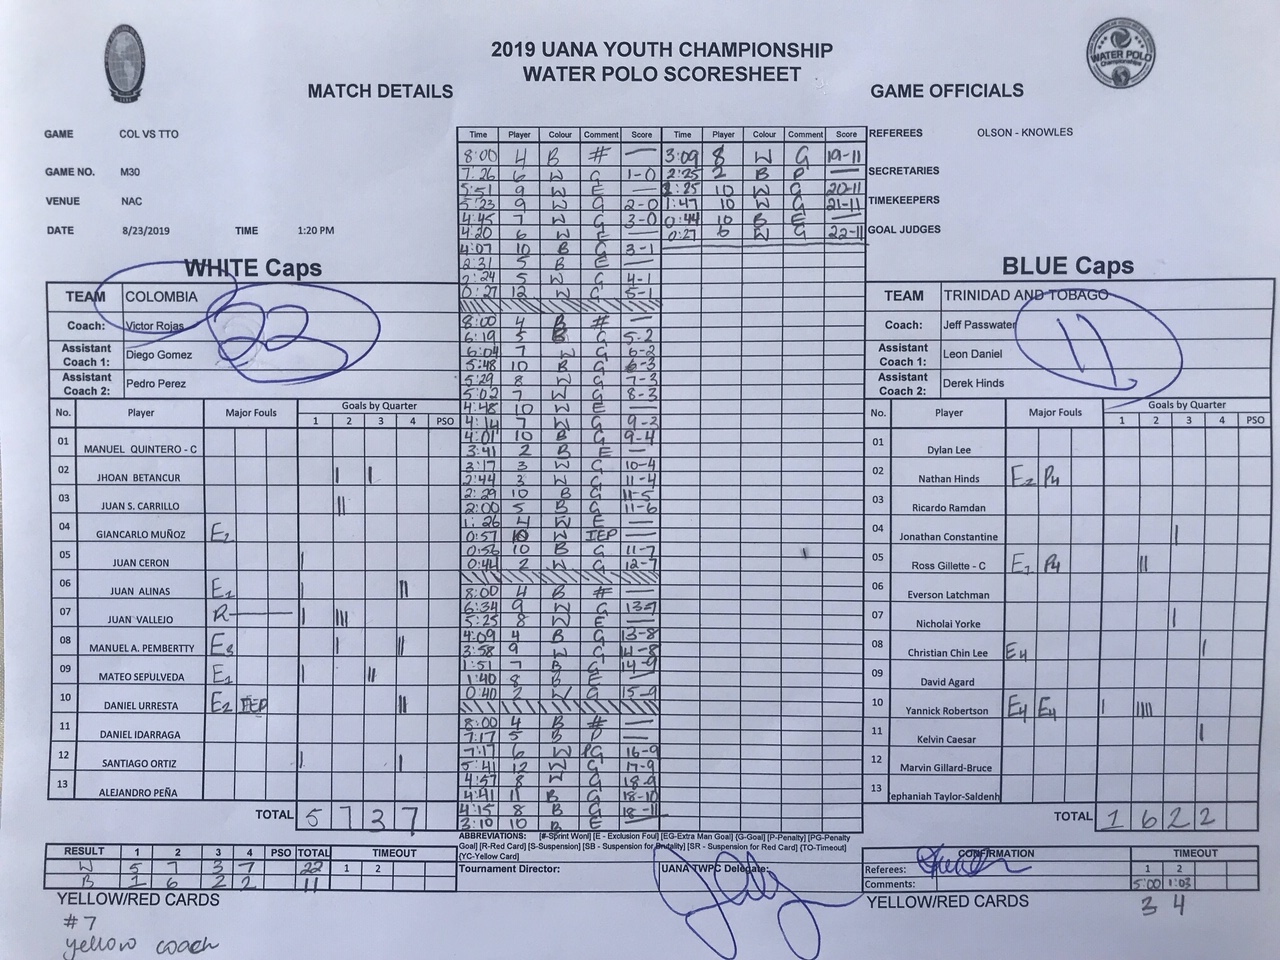 2019 UANA YOUTH CHAMPIONSHIP
WATER POLO SCORESHEET
MATCH DETAILS
GAME OFFICIALS
WATER POLO
GAME COL VS TTO
GAME NO. M30
VENUE NAC
DATE 8/23/2019 TIME 1:20 PM
REFEREES OLSON - KNOWLES
SECRETARIES
TIMEKEEPERS
GOAL JUDGES
WHITE Caps
TEAM COLOMBIA
Coach: Victor Rojas
Assistant Coach 1: Diego Gomez
Assistant Coach 2: Pedro Perez
22
No. Player Major Fouls Goals by Quarter
1 2 3 4 PSO
01 MANUEL QUINTERO - C
02 JHOAN BETANCUR | |
03 JUAN S. CARRILLO ||
04 GIANCARLO MUÑOZ E2
05 JUAN CERON |
06 JUAN ALINAS E1 | ||
07 JUAN VALLEJO R | |||
08 MANUEL A. PEMBERTTY E3 | ||
09 MATEO SEPULVEDA E1 | ||
10 DANIEL URRESTA E2 IEP ||
11 DANIEL IDARRAGA
12 SANTIAGO ORTIZ | |
13 ALEJANDRO PEÑA
TOTAL 5 7 3 7
Time Player Colour Comment Score
8:00 4 B # —
7:26 6 W G 1-0
5:51 9 W E —
5:23 9 W G 2-0
4:45 7 W G 3-0
4:20 6 W E —
4:07 10 B G 3-1
2:31 5 B E —
2:24 5 W G 4-1
0:27 12 W G 5-1
8:00 4 B # —
6:19 5 B G 5-2
6:04 7 W G 6-2
5:48 10 B G 6-3
5:29 8 W G 7-3
5:02 7 W G 8-3
4:48 10 W E —
4:14 7 W G 9-3
4:01 10 B G 9-4
3:41 2 B E —
3:17 3 W G 10-4
2:44 3 W G 11-4
2:29 10 B G 11-5
2:00 5 B G 11-6
1:26 4 W E —
0:57 10 W IEP —
0:56 10 B G 11-7
0:44 2 W G 12-7
8:00 4 B # —
6:34 9 W G 13-7
5:25 8 W E —
4:09 4 B G 13-8
3:58 9 W G 14-8
1:51 7 B G 14-9
1:40 8 B E —
0:40 2 W G 15-9
8:00 4 B # —
7:17 5 B P —
7:17 6 W PG 16-9
5:41 12 W G 17-9
4:57 8 W G 18-9
4:41 11 B G 18-10
4:15 8 B G 18-11
3:10 10 B E
Time Player Colour Comment Score
3:09 8 W G 19-11
2:25 2 B P —
2:25 10 W G 20-11
1:47 10 W G 21-11
0:44 10 B E —
0:27 6 W G 22-11
BLUE Caps
TEAM TRINIDAD AND TOBAGO
Coach: Jeff Passwater
Assistant Coach 1: Leon Daniel
Assistant Coach 2: Derek Hinds
11
No. Player Major Fouls Goals by Quarter
1 2 3 4 PSO
01 Dylan Lee
02 Nathan Hinds E2 P4
03 Ricardo Ramdan
04 Jonathan Constantine |
05 Ross Gillette - C E1 P4 ||
06 Everson Latchman
07 Nicholai Yorke |
08 Christian Chin Lee E4 |
09 David Agard
10 Yannick Robertson E4 E4 | ||||
11 Kelvin Caesar |
12 Marvin Gillard-Bruce
13 ephaniah Taylor-Saldenh
TOTAL 1 6 2 2
ABBREVIATIONS: [#-Sprint Won] [E - Exclusion Foul] [EG-Extra Man Goal] [G-Goal] [P-Penalty] [PG-Penalty
Goal] [R-Red Card] [S-Suspension] [SB - Suspension for Brutality] [SR - Suspension for Red Card] [TO-Timeout]
[YC-Yellow Card]
Tournament Director:
UANA TWPC Delegate:
RESULT 1 2 3 4 PSO TOTAL TIMEOUT
W 5 7 3 7 22 1 2
B 1 6 2 2 11
YELLOW/RED CARDS
#7
yellow coach
CONFIRMATION
Referees:
Comments:
TIMEOUT
1 2
5:00 1:03
3 4
YELLOW/RED CARDS